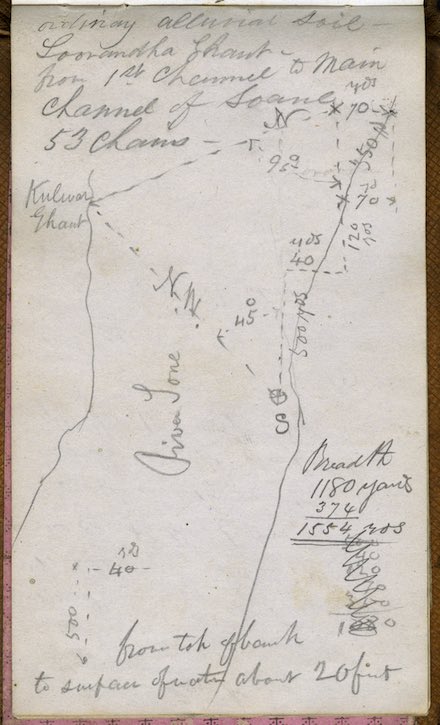 ordinary alluvial soil –
Soorandha Ghaut –
from 1st Channel to Main
Channel of Soane
53 Chains –
yds
70
N
550 yds
90
70
Kulwar
Ghaut
120
yds
yds
40
NW
45°
500 yds
River Sone
S
Breadth
1180 yards
374
1554 yds
yds
40
500
from top of bank
to surface of water about 20 feet